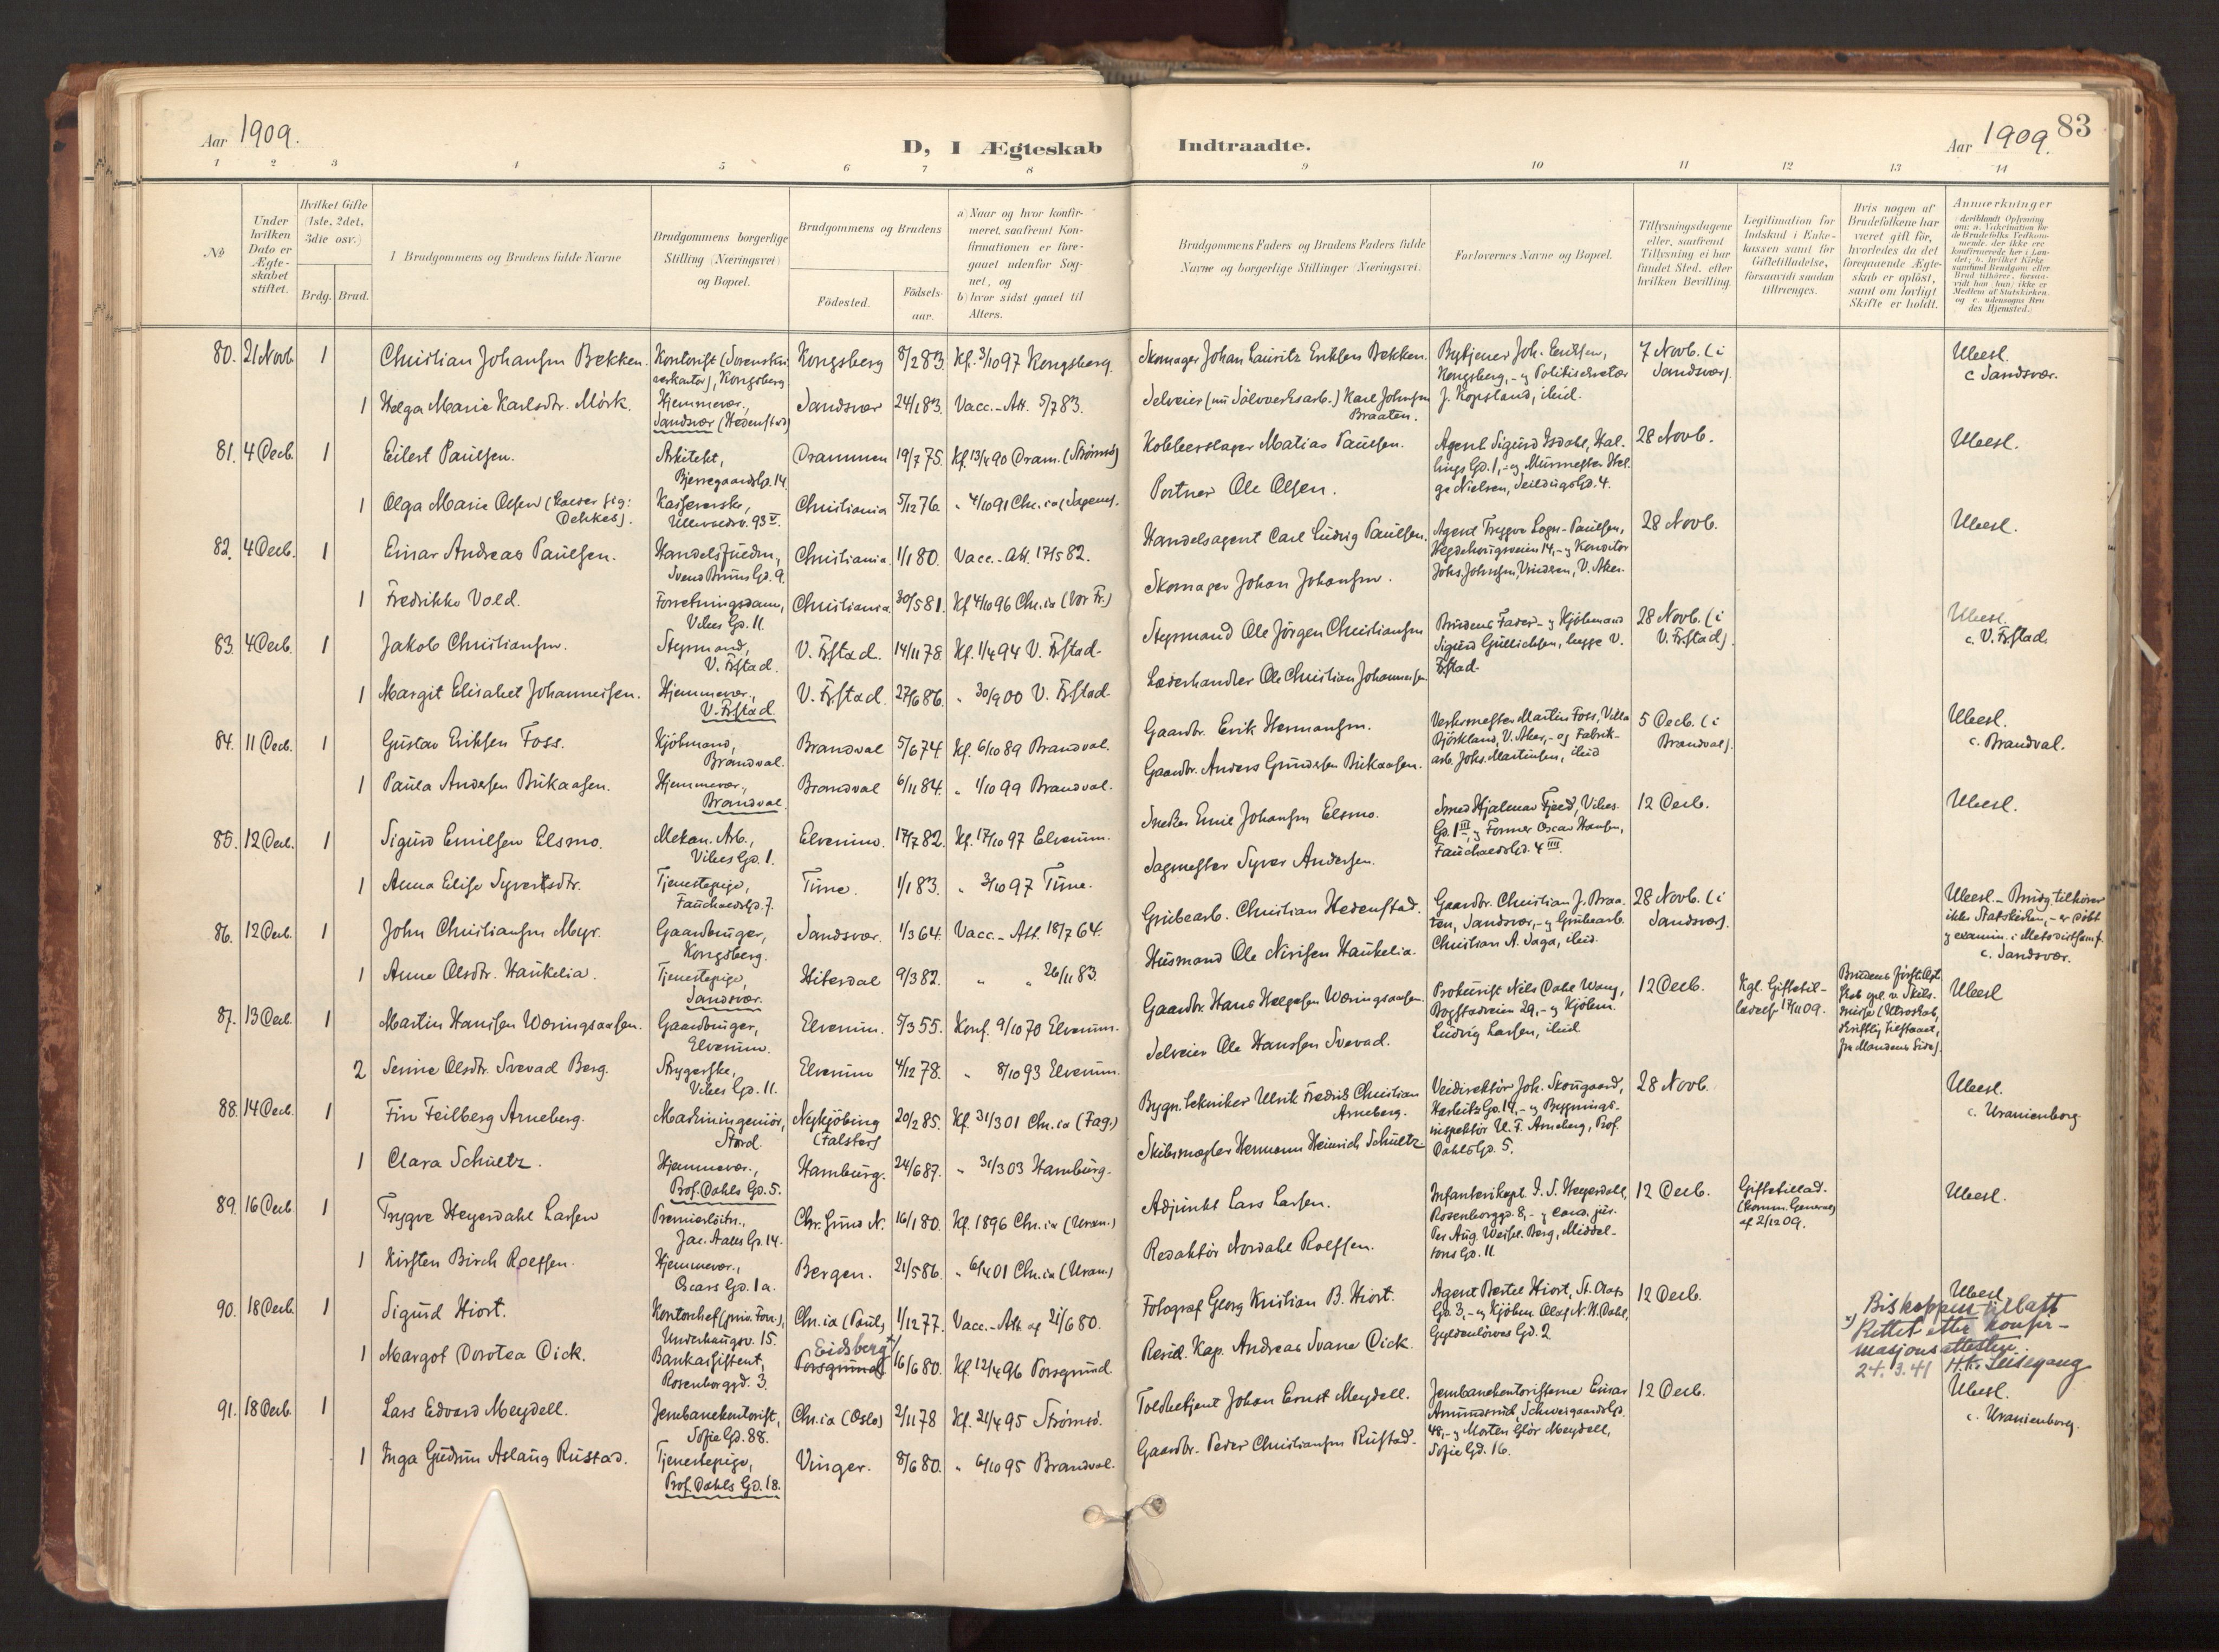 Aar 1909.
D, I Ægteskab Indtraadte.
Aar 1909. 83
1 2 3 4 5 6 7 8 9 10 11 12 13 14
No
Under hvilken Dato er Ægteskabet stiftet.
Hvilket Gifte (1ste, 2det, 3die osv.)
Brdg. Brud.
Brudgommens og Brudens fulde Navne
Brudgommens borgerlige Stilling (Næringsvei) og Bopæl.
Brudgommens og Brudens
Födested.
Födsels-aar.
a) Naar og hvor konfirmeret, saafremt Konfirmationen er foregaaet udenfor Sognet, og
b) hvor sidst gaaet til Alters.
Brudgommens Faders og Brudens Faders fulde Navne og borgerlige Stillinger (Næringsvei).
Forlovernes Navne og Bopæl.
Tillysningsdagene eller, saafremt Tillysning ei har fundet Sted, efter hvilken Bevilling.
Legitimation for Indskud i Enkekassen samt for Giftetilladelse, forsaavidt saadan tiltrænges.
Hvis nogen af Brudefolkene har været gift før, hvorledes da det foregaaende Ægteskab er opløst, samt om lovligt Skifte er holdt.
Anmærkninger
80. 21 Novb 1 Christian Johansen Bekken. Kontorist (Sorenskriverkontor), Kongsberg Kongsberg 8/2 83. Kf. 3/10 97 Kongsberg. Skomager Johan Lauritz Eriksen Bekken. Bytjener Joh. Eriksen, Kongsberg, - og Politisekretær J. Kopsland, ibid. 7 Novb. (i Sandsvær). Ubesl. c Sandsvær.
1 Helga Marie Karlsdtr. Mörk. Hjemmevær., Sandsvær (Hedenstad) Sandsvær 24/1 83. Vacc.-Att. 5/7 83. Selveier (nu Sölvverksarb.) Karl Johnsen Braaten.
81. 4 Decb. 1 Eilert Paulsen. Arkitekt, Bjerregaardsgd. 14. Drammen 19/7 75. Kf. 13/4 90 Dram. (Strømsö) Kobberslager Matias Paulsen. Agent Sigurd Isdahl, Hallings Gd. 1, - og Murmester Helge Nielsen, Seildugsgd. 4. 28 Novb. Ubesl.
1 Olga Marie Olsen (kalder sig: Dehkes). Kasserske, Ullevoldsv. 93 V. Christiania 5/12 76. " 4/10 91 Chr.ia (Sagenes). Portner Ole Olsen.
82. 4 Decb. 1 Einar Andreas Paulsen. Handelsfuldm., Svend Bruns Gd. 9. Christiania. 1/1 80. Vacc.-Att. 17/5 82. Handelsagent Carl Ludvig Paulsen. Agent Trygve Loges-Paulsen, Hegdehaugsveien 14, - og Konditor Johs. Johnsen, Vinderen, V. Aker. 28 Novb. Ubesl.
1 Fredrikke Vold. Forretningsdame, Vibes Gd. 11. Christiania. 30/5 81. Kf 4/10 96 Chr.ia (Vor Fr.) Skomager Johan Johansen.
83. 4 Decb. 1 Jakob Christiansen. Styrmand, V. Frstad. V. Frstad. 14/11 78. Kf. 1/4 94 V. Frstad. Styrmand Ole Jörgen Christiansen Brudens Fader - og Kjöbmand Sigurd Gullichsen, begge V. Frstad. 28 Novb. (i V. Frstad). Ubesl. c. V. Frstad.
1 Margit Elisabet Johannesen. Hjemmevær., V. Frstad. V. Frstad. 27/6 86. " 30/9 00 V. Frstad. Læderhandler Ole Christian Johannesen.
84. 11 Decb. 1 Gustav Eriksen Foss. Kjöbmand, Brandval. Brandval 5/6 74. Kf. 6/10 89 Brandval. Gaardbr. Erik Hermansen. Verksmester Martin Foss, Villa Björkland, V. Aker, - og Fabrikarb. Johs. Martinsen, ibid 5 Decb. (i Brandval). Ubesl. c. Brandval.
1 Paula Andersen Bukaasen. Hjemmevær., Brandval. Brandval 6/11 84. " 1/10 99 Brandval. Gaardbr. Anders Gundersen Bukaasen.
85. 12 Decb. 1 Sigurd Emilsen Elsmo. Mekan. Arb., Vibes Gd. 1. Elverum. 17/7 82. Kf. 17/10 97 Elverum. Snekker Emil Johansen Elsmo. Smed Hjalmar Fjeld, Vibes Gd. 1 III, og Former Oscar Hansen, Fauchaldsgd. 4 III. 12 Decb. Ubesl.
1 Anna Elise Syvertsdtr. Tjenestepige, Fauchaldsgd. 7. Tune. 1/1 83. " 3/10 97 Tune. Sagmester Syver Andersen.
86. 12 Decb. 1 John Christiansen Myr. Gaardbruger, Kongsberg. Sandsvær. 1/3 64. Vacc.-Att. 18/7 64. Grubearb. Christian Hedenstad. Gaardbr. Christian J. Braaten, Sandsvær, - og Grubearb. Christian A. Saga, ibid. 28 Novb. (i Sandsvær). Ubesl. - Brudg. tilhører ikke Statskirken, - er døbt og examin. i Metodistsamf. c. Sandsvær.
1 Anne Olsdtr. Haukelia. Tjenestepige, Sandsvær. Hiterdal 9/3 82. " " 26/11 83 Husmand Ole Nirisen Haukelia.
87. 13 Decb. 1 Martin Hansen Wæringsaasen. Gaardbruger, Elverum. Elverum. 5/3 55. Konf. 9/10 70 Elverum. Gaardbr. Hans Helgesen Wæringsaasen. Prokurist Nils Dahl Wang, Bogstadveien 29, - og Kjöbm. Ludvig Larsen, ibid 12 Decb. Kgl. Giftetilladelse 17/11 09. Brudens første Ægteskab opl. v. Skilsmisse (Utroskab, skriftlig tilstaaet, fra Mandens Side). Ubesl
2 Semine Olsdtr. Svevad Berg. Strygerske, Vibes Gd. 11. Elverum 4/12 78. " 8/10 93 Elverum. Selveier Ole Hanssen Svevad.
88. 14 Decb. 1 Fin Feilberg Arneberg. Maskiningeniör, Stord. Nykjöbing (Falster) 20/2 85. Kf. 31/3 01 Chr.ia (Fag.) Bygn.tekniker Ulrik Fredrik Christian Arneberg. Veidirektör Joh. Skougaard, Herbitzgd. 14, - og Bygningsinspektör U. F. Arneberg, Prof. Dahlsgd. 5. 28 Novb. Ubesl. c. Uranienborg
1 Clara Schultz. Hjemmevær., Prof. Dahls Gd. 5. Hamburg. 24/6 87. " 31/3 03 Hamburg. Skibsmægler Hermann Heinrich Schultz.
89. 16 Decb 1 Trygve Heyerdahl Larsen Premierlöitn., Jac. Aalls Gd. 14. Chr.sund N. 16/1 80. Kf. 1896 Chr.ia (Uran.) Adjunkt Lars Larsen. Infanterikapt. I. S. Heyerdahl, Rosenborggd. 8, - og cand. jur. Per Aug. Weisel Berg, Middeltons Gd. 11 12 Decb. Giftetillad. (komm. General) af 2/12 09. Ubesl.
1 Kirsten Birch Rolfsen. Hjemmevær., Oscars Gd. 1 a. Bergen. 21/5 86. " 6/4 01 Chr.ia (Uran.) Redaktör Nordahl Rolfsen.
90. 18 Decb 1 Sigurd Hiort. Kontorchef (priv. Forr.), Underhaugsv. 15. Chr.ia (Paul) 1/12 77. Vacc.-Att af 21/6 80. Fotograf Georg Kristian B. Hiort. Agent Bertel Hiort, St. Olafs Gd. 3, - og Kjöbm. Olaf N. H. Dahl, Gyldenlöves Gd. 2 12 Decb. Ubesl
1 Margot Dorotea Dick. Bankassistent, Rosenborggd. 3. Eidsberg x) Porsgrund 16/6 80. Kf 12/4 96 Porsgrund. Resid. Kap. Andreas Svane Dick. x) Biskoppens tillatt Rettet etter konfirmasjonsattesten. 24.3.41 H.Kr. Seisegang
91. 18 Decb. 1 Lars Edvard Meydell. Jernbanekontorist, Sofie Gd. 88. Chr.ia (Oslo) 2/11 78 Kf. 21/4 95 Strömsö. Toldbetjent Johan Ernst Meydell. Jernbanekontoristerne Einar Amundsrud, Schweigaardsgd. 48, - og Morten Glör Meydell, Sofie Gd. 16. 12 Decb. Ubesl. c. Uranienborg.
1 Inga Gudrun Aslaug Rustad. Tjenestepige, Prof. Dahls Gd. 18. Vinger. 8/6 80. " 6/10 95 Brandval. Gaardbr. Peder Christiansen Rustad.